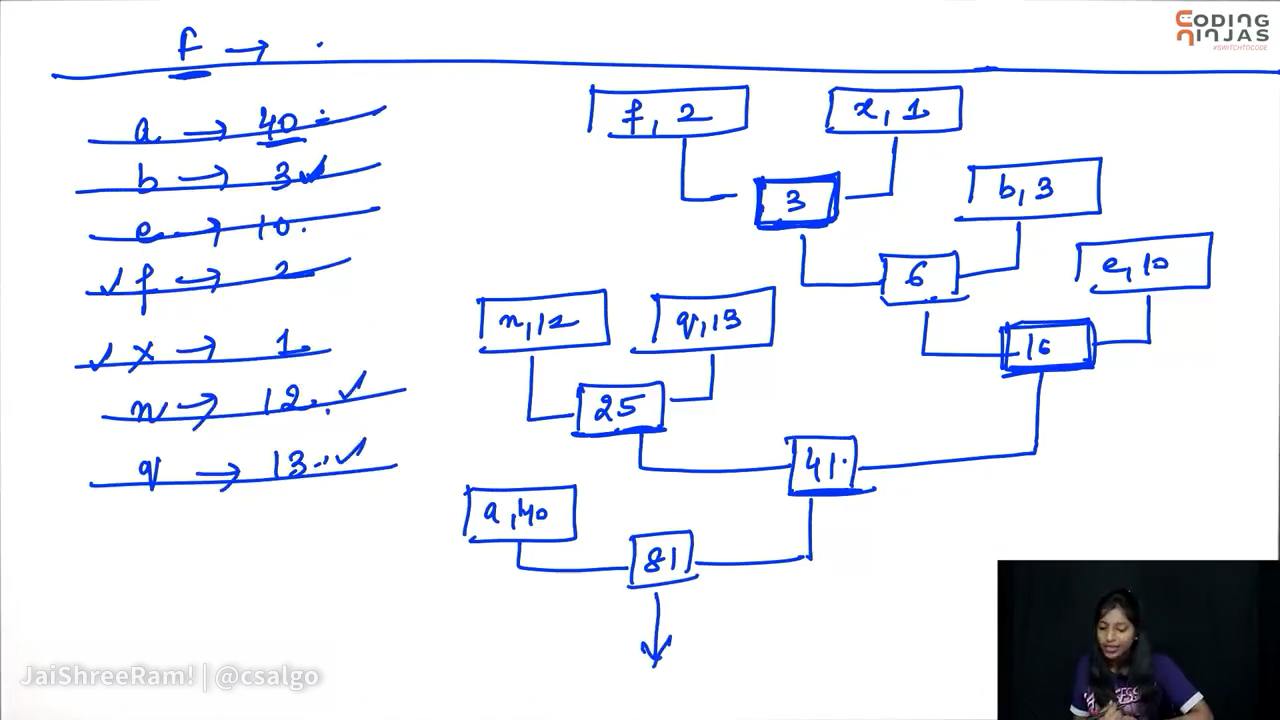 CODING NINJAS
#SWITCHTOCODE
f →
a → 40
b → 3 ✓
e → 10.
✓ f → 2
✓ x → 1.
n → 12. ✓
q → 13. ✓
f, 2
x, 1
3
b, 3
6
e, 10
16
n, 12
q, 13
25
41.
a, 40
81
JaiShreeRam! | @csalgo